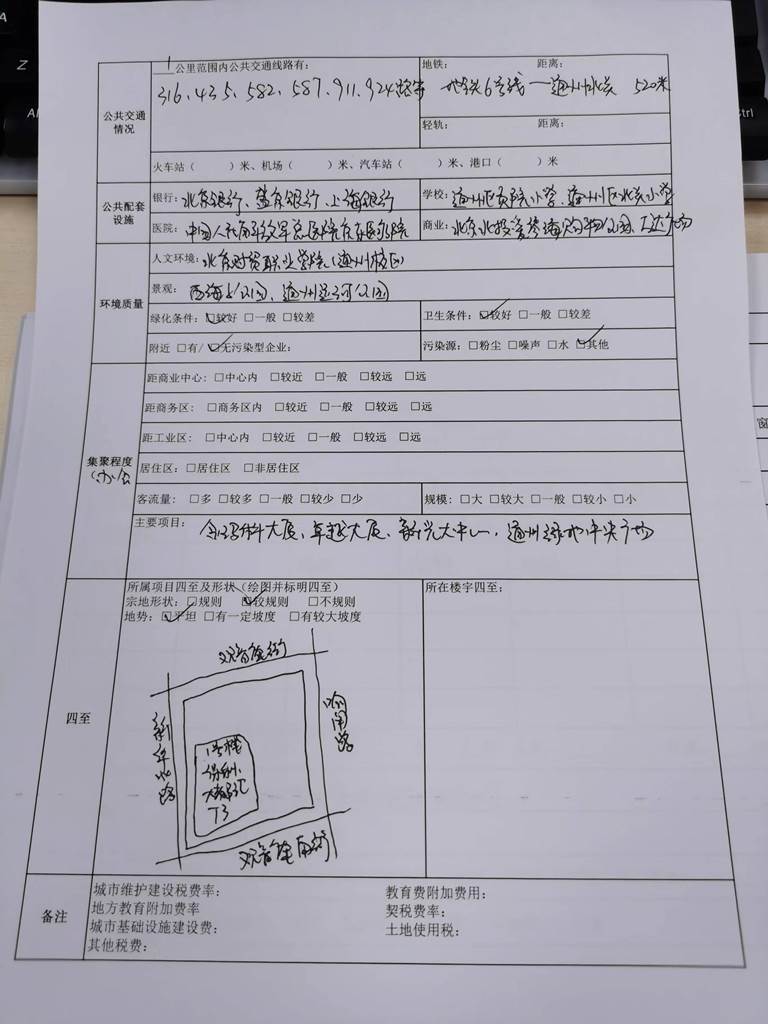 A
Z
Al
Ctrl
1公里范围内公共交通线路有:
地铁: 距离:
316、435、582、587、911、924路等
地铁6号线—通州北关 520米
公共交通情况
轻轨: 距离:
火车站（ ）米、机场（ ）米、汽车站（ ）米、港口（ ）米
公共配套设施
银行: 北京银行、盛京银行、上海银行
学校: 通州区贡院小学、通州区北关小学
医院: 中国人民解放军总医院京东医院
商业: 北京北投爱琴海购物公园、万达广场
环境质量
人文环境: 北京财贸职业学院(通州校区)
景观: 西海子公园、通州运河公园
绿化条件: ☑较好 □一般 □较差
卫生条件: ☑较好 □一般 □较差
附近 □有/☑无污染型企业:
污染源: □粉尘 □噪声 □水 ☑其他
集聚程度
(办公
距商业中心: □中心内 □较近 □一般 □较远 □远
距商务区: □商务区内 □较近 □一般 □较远 □远
距工业区: □中心内 □较近 □一般 □较远 □远
居住区: □居住区 □非居住区
客流量: □多 □较多 □一般 □较少 □少
规模: □大 □较大 □一般 □较小 □小
主要项目:
大厦、卓越大厦、新光大中心、通州绿地中央广场
四至
所属项目四至及形状（绘图并标明四至）
宗地形状: □规则 ☑较规则 □不规则
地势: ☑平坦 □有一定坡度 □有较大坡度
所在楼宇四至:
观音庵街
新华北路
1号楼
保利
大都汇
T3
响闸路
观音庵南街
备注
城市维护建设税费率:
教育费附加费用:
地方教育附加费率
契税费率:
城市基础设施建设费:
土地使用税:
其他税费:
窗